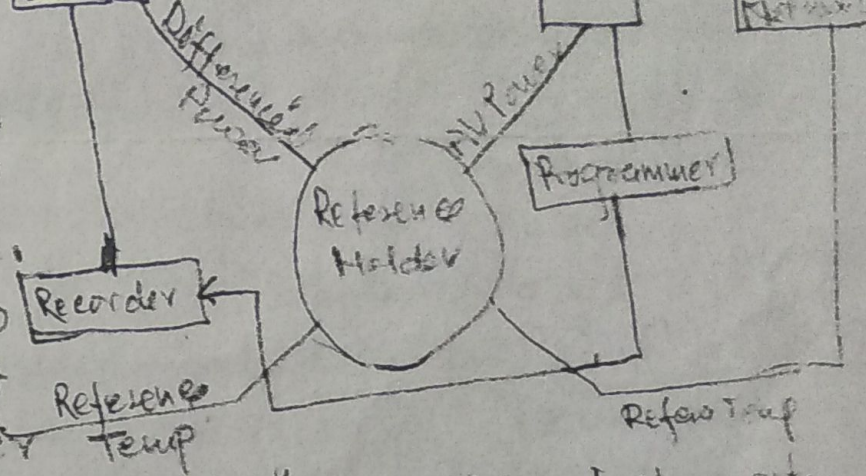 Differencial
Power
AV Power
Programmer
Reference
Holder
Recorder
Reference
Temp
Refere Temp